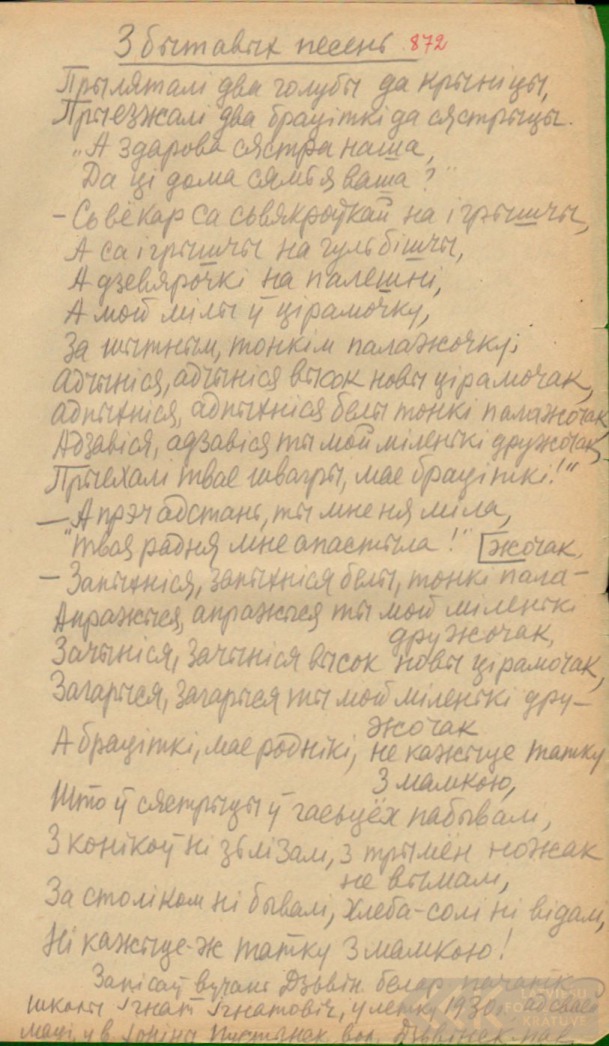 З бытавых песень 872
Прыляталі два голубы да крыніцы,
Прыезжалі два брацiткі да сястрыцы.
„А здарова сястра наша,
Да ці дома сямья ваша?"
– Сьвёкар са сьвякроўкай на ігрышчы,
А са ігрышчы на гульбішчы,
А дзевярочкі на палешні,
А мой мілы ў цірамочку,
За шытным, тонкім палажочку;
Адчыніся, адчыніся высок новы цірамочак,
адпыхніся, адпыхніся белы тонкі палажочак
Адзавіся, адзавіся ты мой міленькі дружочак,
Прыехалі твае швагры, мае брацiткі!"
– А прэч адстань, ты мне ня міла,
"твая радня мне апастыла!" [жочак,
– Запыхніся, запыхніся белы, тонкі пала-
Апражыся, апражыся ты мой міленькі
дружочак,
Зачыніся, Зачыніся высок новы цірамочак,
Загарыся, Загарыся ты мой міленькі дру-
жочак
А брацiткі, мае роднікі, не кажыце татку
З мамкою,
Што ў сястрыцы ў гасьцёх пабывалі,
З конікоў ні зьлізалі, з трымён ножак
не вымалі,
За століком ні бывалі, хлеба-солі ні відалі,
Ні кажыце-ж татку з мамкою!
Запісаў вучань Дзьвін. белар. початк.
школы Ігнат Ігнатовіч, у летку 1930г. ад сваей
маці, у в.